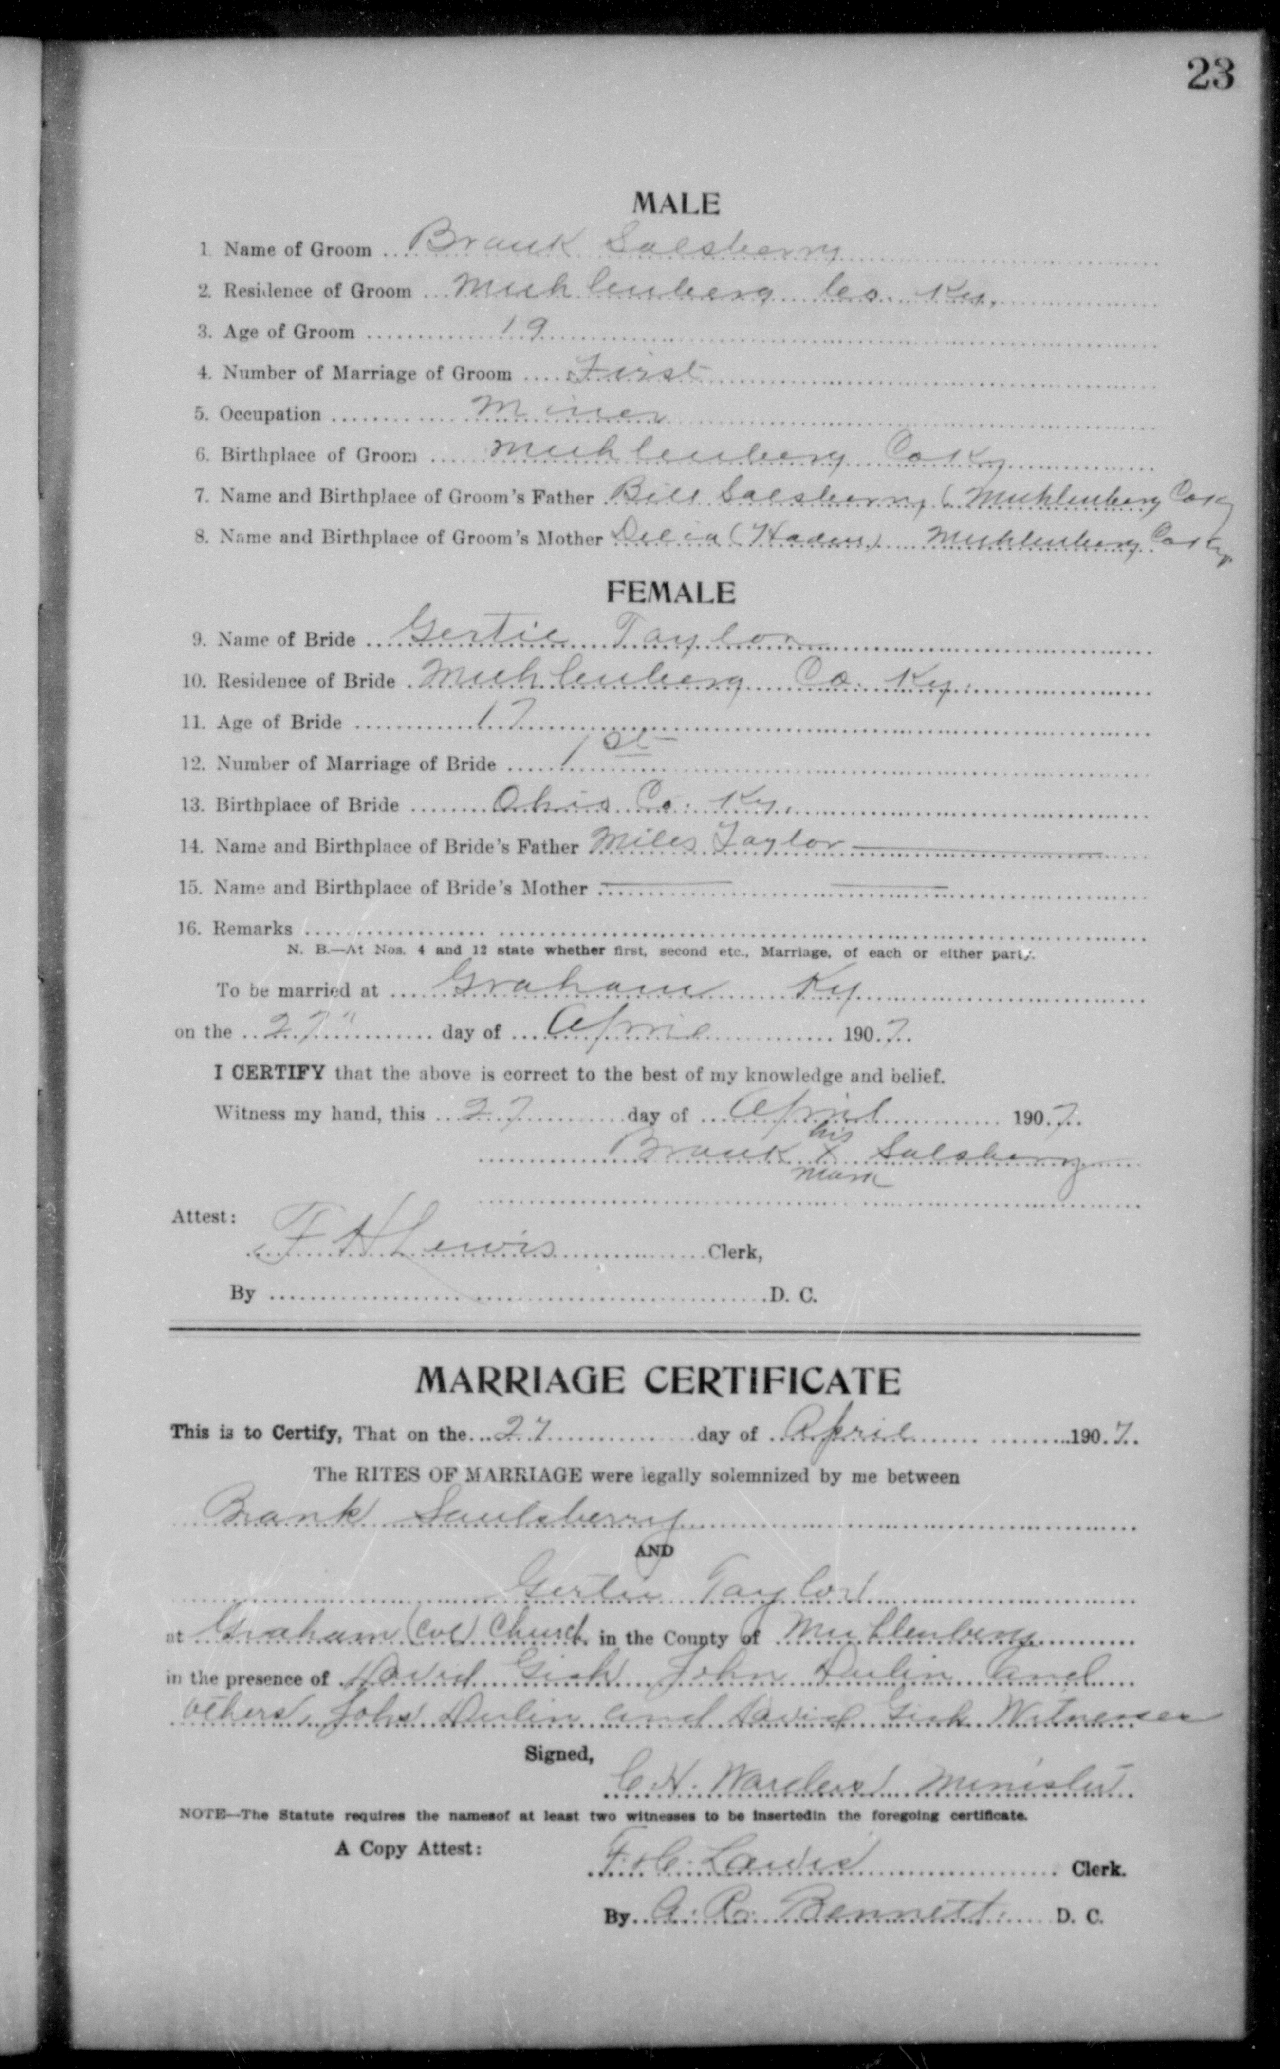 23
MALE
1 Name of Groom Brank Salsberry
2. Residence of Groom Muhlenberg Co. Ky.
3. Age of Groom 19
4. Number of Marriage of Groom First
5. Occupation Miner
6. Birthplace of Groom Muhlenberg Co Ky
7. Name and Birthplace of Groom's Father Bill Salsberry ( Muhlenberg Co Ky
8. Name and Birthplace of Groom's Mother Delia (Haden) Muhlenberg Co Ky
FEMALE
9. Name of Bride Gertie Taylor
10. Residence of Bride Muhlenberg Co. Ky.
11. Age of Bride 17
12. Number of Marriage of Bride 1st
13. Birthplace of Bride Ohio Co. Ky.
14. Name and Birthplace of Bride's Father Miles Taylor
15. Name and Birthplace of Bride's Mother
16. Remarks
N. B.—At Nos. 4 and 12 state whether first, second etc., Marriage, of each or either party.
To be married at Graham Ky
on the 27" day of April 1907.
I CERTIFY that the above is correct to the best of my knowledge and belief.
Witness my hand, this 27 day of April 1907.
his
Brank X Salsberry
mark
Attest:
Lewis Clerk,
By D. C.
MARRIAGE CERTIFICATE
This is to Certify, That on the 27 day of April 1907.
The RITES OF MARRIAGE were legally solemnized by me between
Brank Saulsberry
AND
Gertie Taylor
at Graham (Col) Church in the County of Muhlenberg
in the presence of David Gish John Dulin and
others, John Dulin and David Gish Witnesses
Signed,
C. H. Minister
NOTE—The Statute requires the namesof at least two witnesses to be insertedin the foregoing certificate.
A Copy Attest:
Lewis Clerk.
By A. R. Bennett D. C.